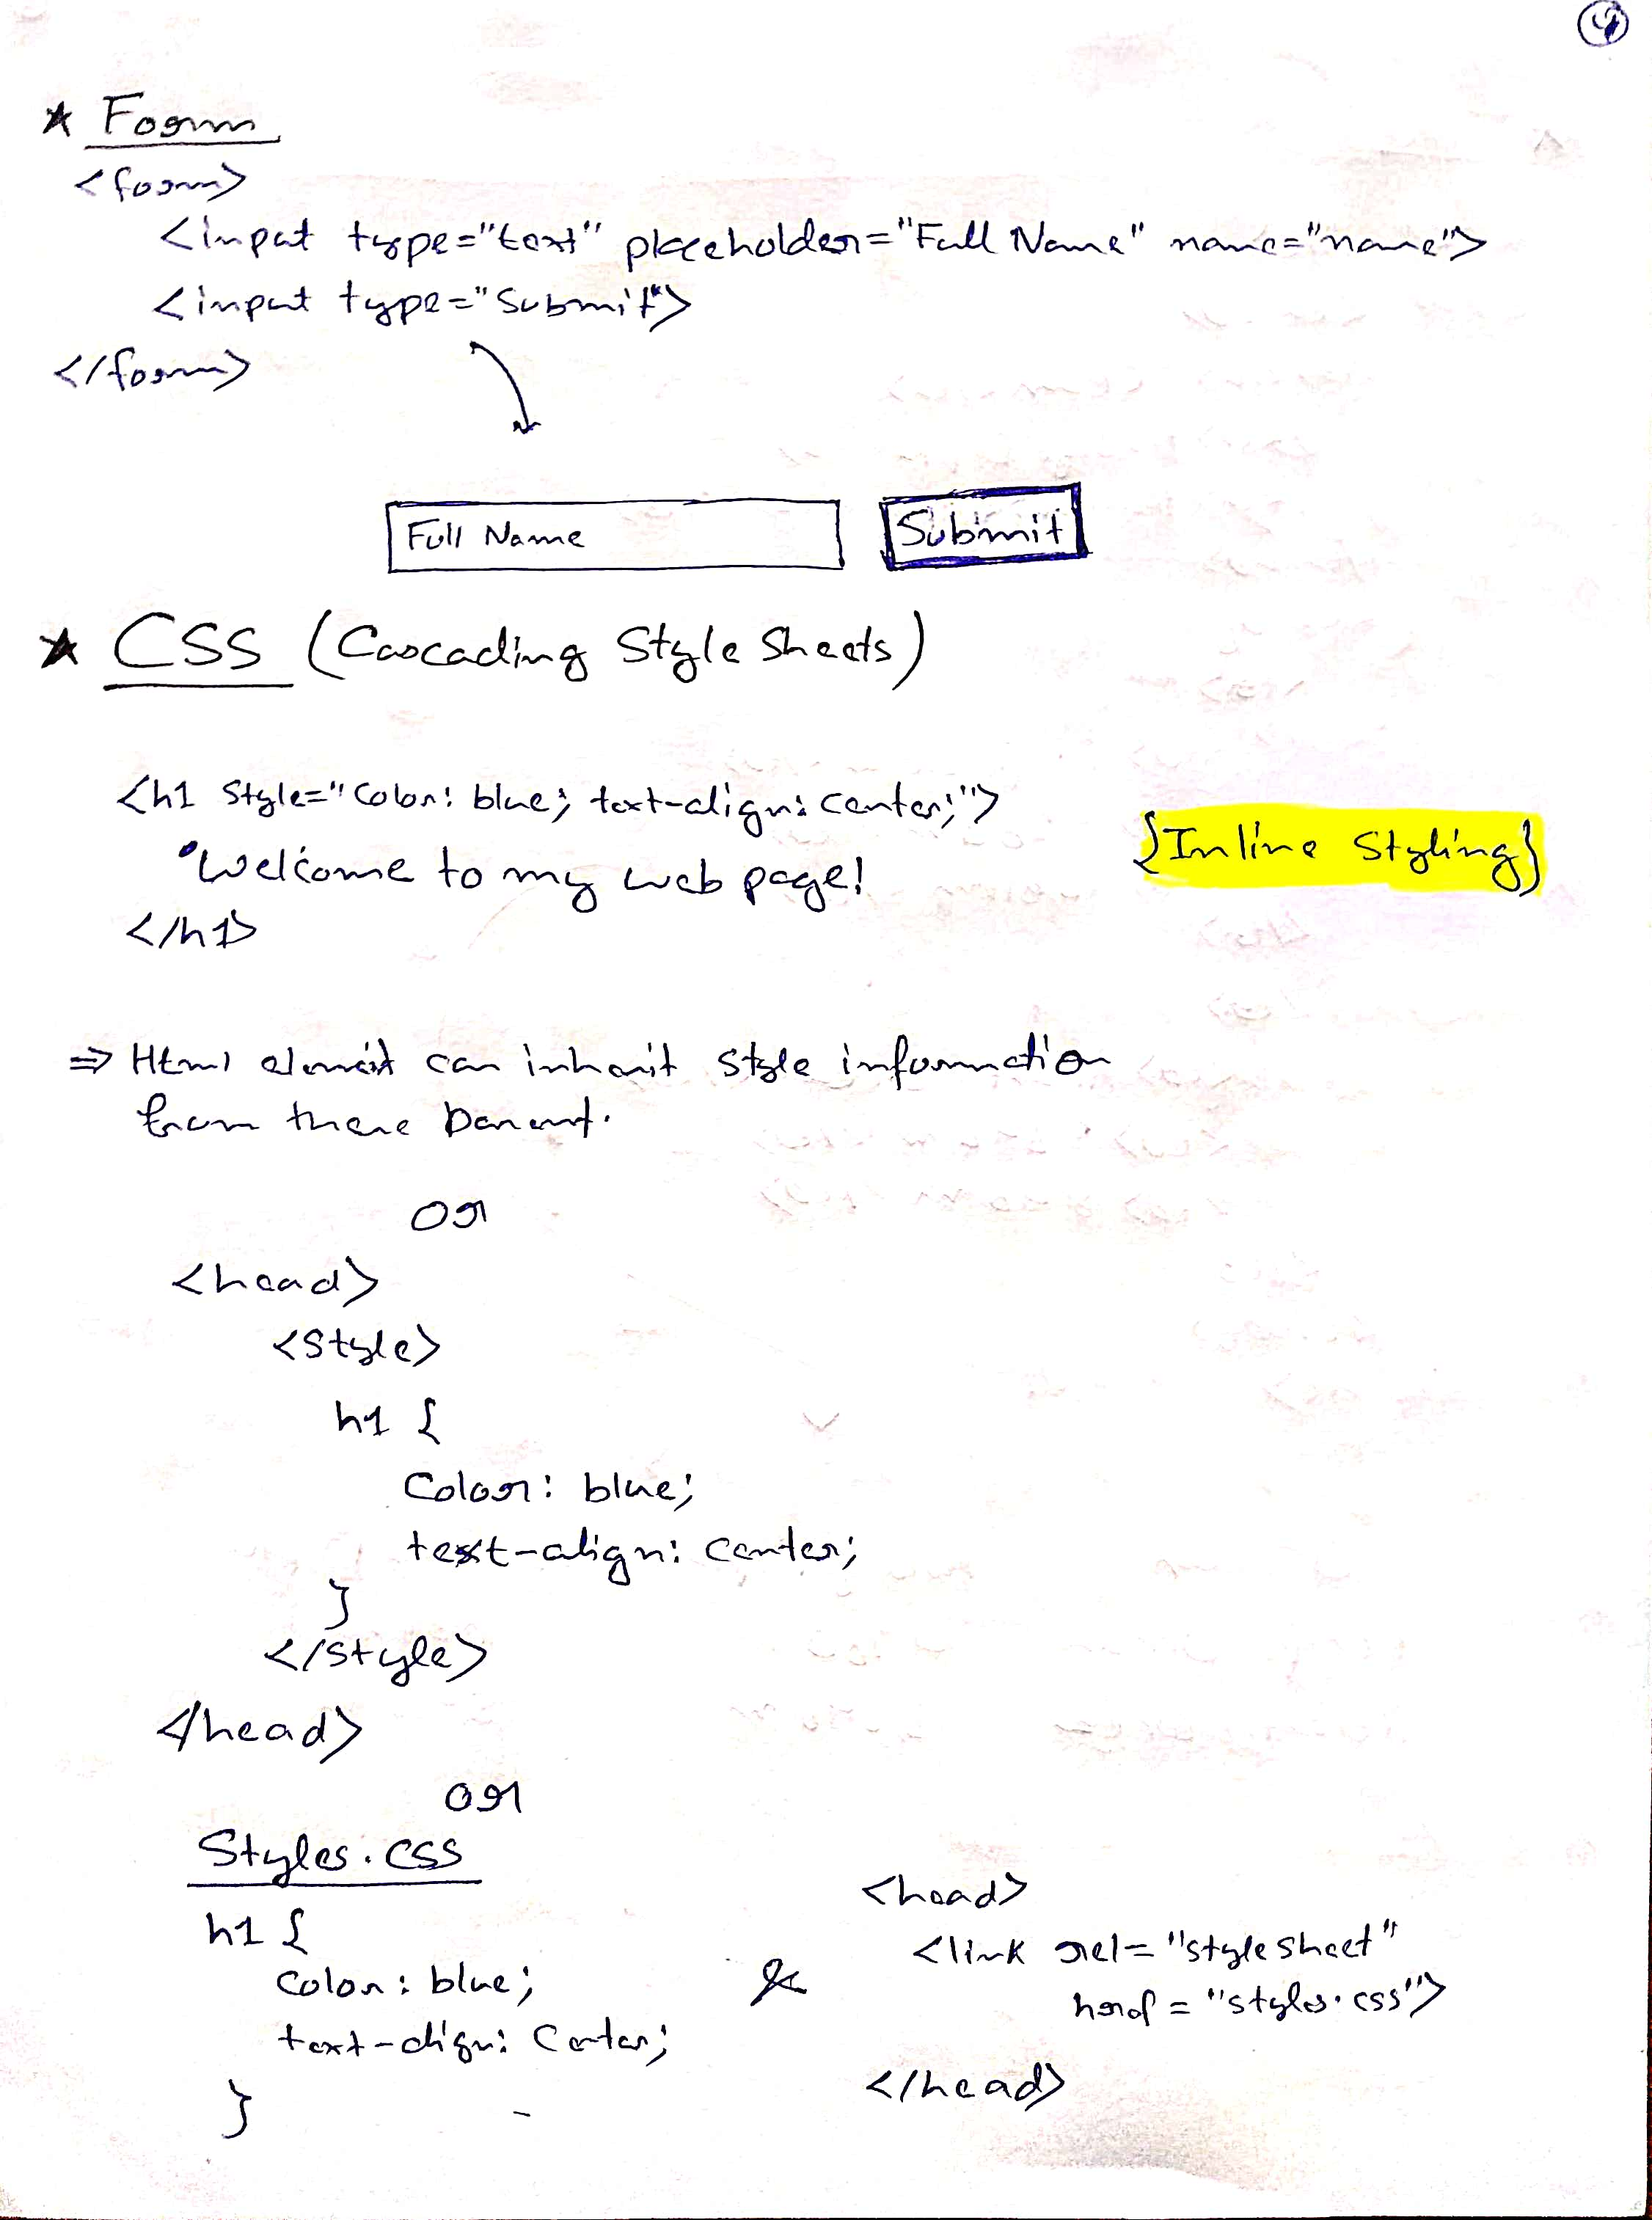 4
* Form
<form>
<input type="text" placeholder="Full Name" name="name">
<input type="Submit">
</form>
Full Name
Submit
* CSS (Cascading Style Sheets)
<h1 Style="Color: blue; text-align: center;">
Welcome to my web page!
</h1>
{Inline Styling}
⇒ Html element can inherit style information
from there parent.
or
<head>
<Style>
h1 {
Color: blue;
text-align: center;
}
</Style>
</head>
or
Styles.css
h1 {
Color: blue;
text-align: Center;
}
&
<head>
<link rel="stylesheet"
href="styles.css">
</head>